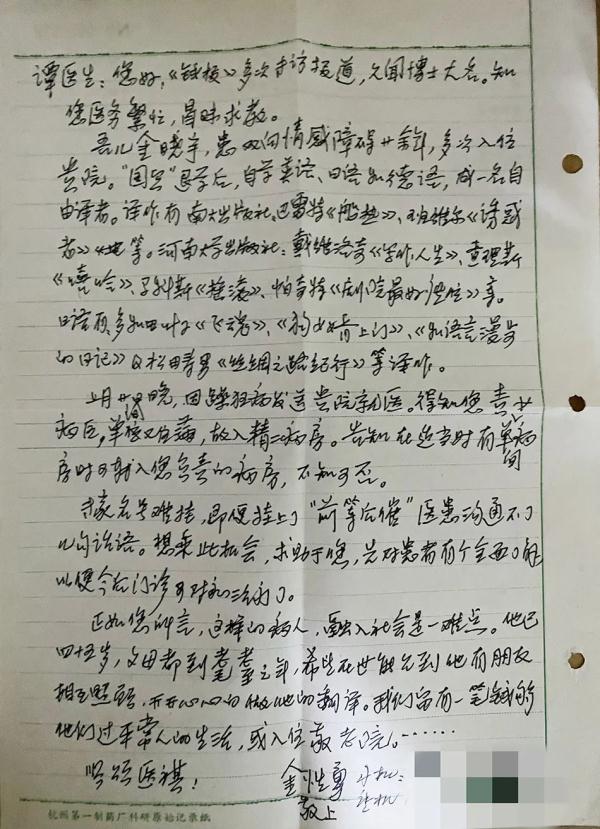 谭医生：您好，《钱报》多次专访报道，久闻博士大名。知
您医务繁忙，冒昧求教。
吾儿金晓宇，患双向情感障碍廿余年，多次入住
贵院。退学后，自学英语、日语和德语，成一名自
由译者。译作有南大出版社，巴雷特《船热》、班维尔《诱惑
者》等。河南大学出版社：戴维洛奇《写作人生》、查理斯
《嘻哈》、《剧院最好的座位》等。
日语有多和田叶子《飞魂》、《狗女婿上门》、《和语言漫步
的日记》及松田寿男《丝绸之路纪行》等译作。
上月廿日晚，因躁狂病发送贵院就医。得知您责
病区，单间又住满，故入精二病房。告知在适当时有单间病
房时可就入您负责的病房，不知可否。
专家名号难挂，即便挂上了"前等后催"医患沟通不了
几句话语。想乘此机会，求助于您，先对患者有个全面了解
以便今后门诊可对和治疗了。
正如您所言，这样的病人，融入社会是一难点。他已
四十五岁，父母都到耄耋之年，希望在世能见到他有朋友
相互照顾，开开心心的做他的翻译。我们留有一笔钱能
他们过平常人的生活，或入住敬老院。……
顺颂医祺！
金性勇 手机：
敬上
杭州第一制药厂科研原始记录纸